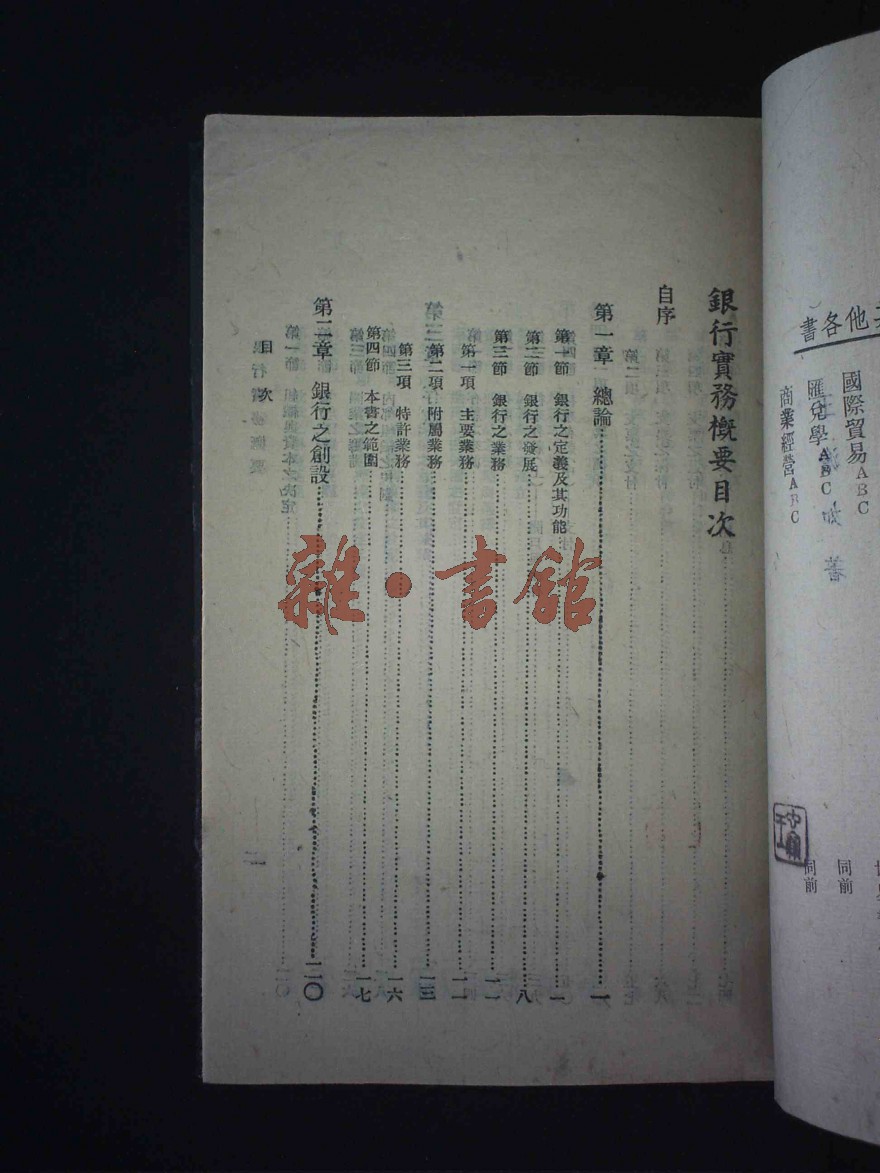 他各書
國際貿易ABC
匯兌學ABC
商業經營ABC
同前
同前
銀行實務概要目次
自序
第一章 總論……一
第一節 銀行之定義及其功能……一
第二節 銀行之發展……八
第三節 銀行之業務……一一
第一項 主要業務……一一
第二項 附屬業務……一三
第三項 特許業務……一六
第四節 本書之範圍……一七
第二章 銀行之創設……二〇
目次
雜·書館